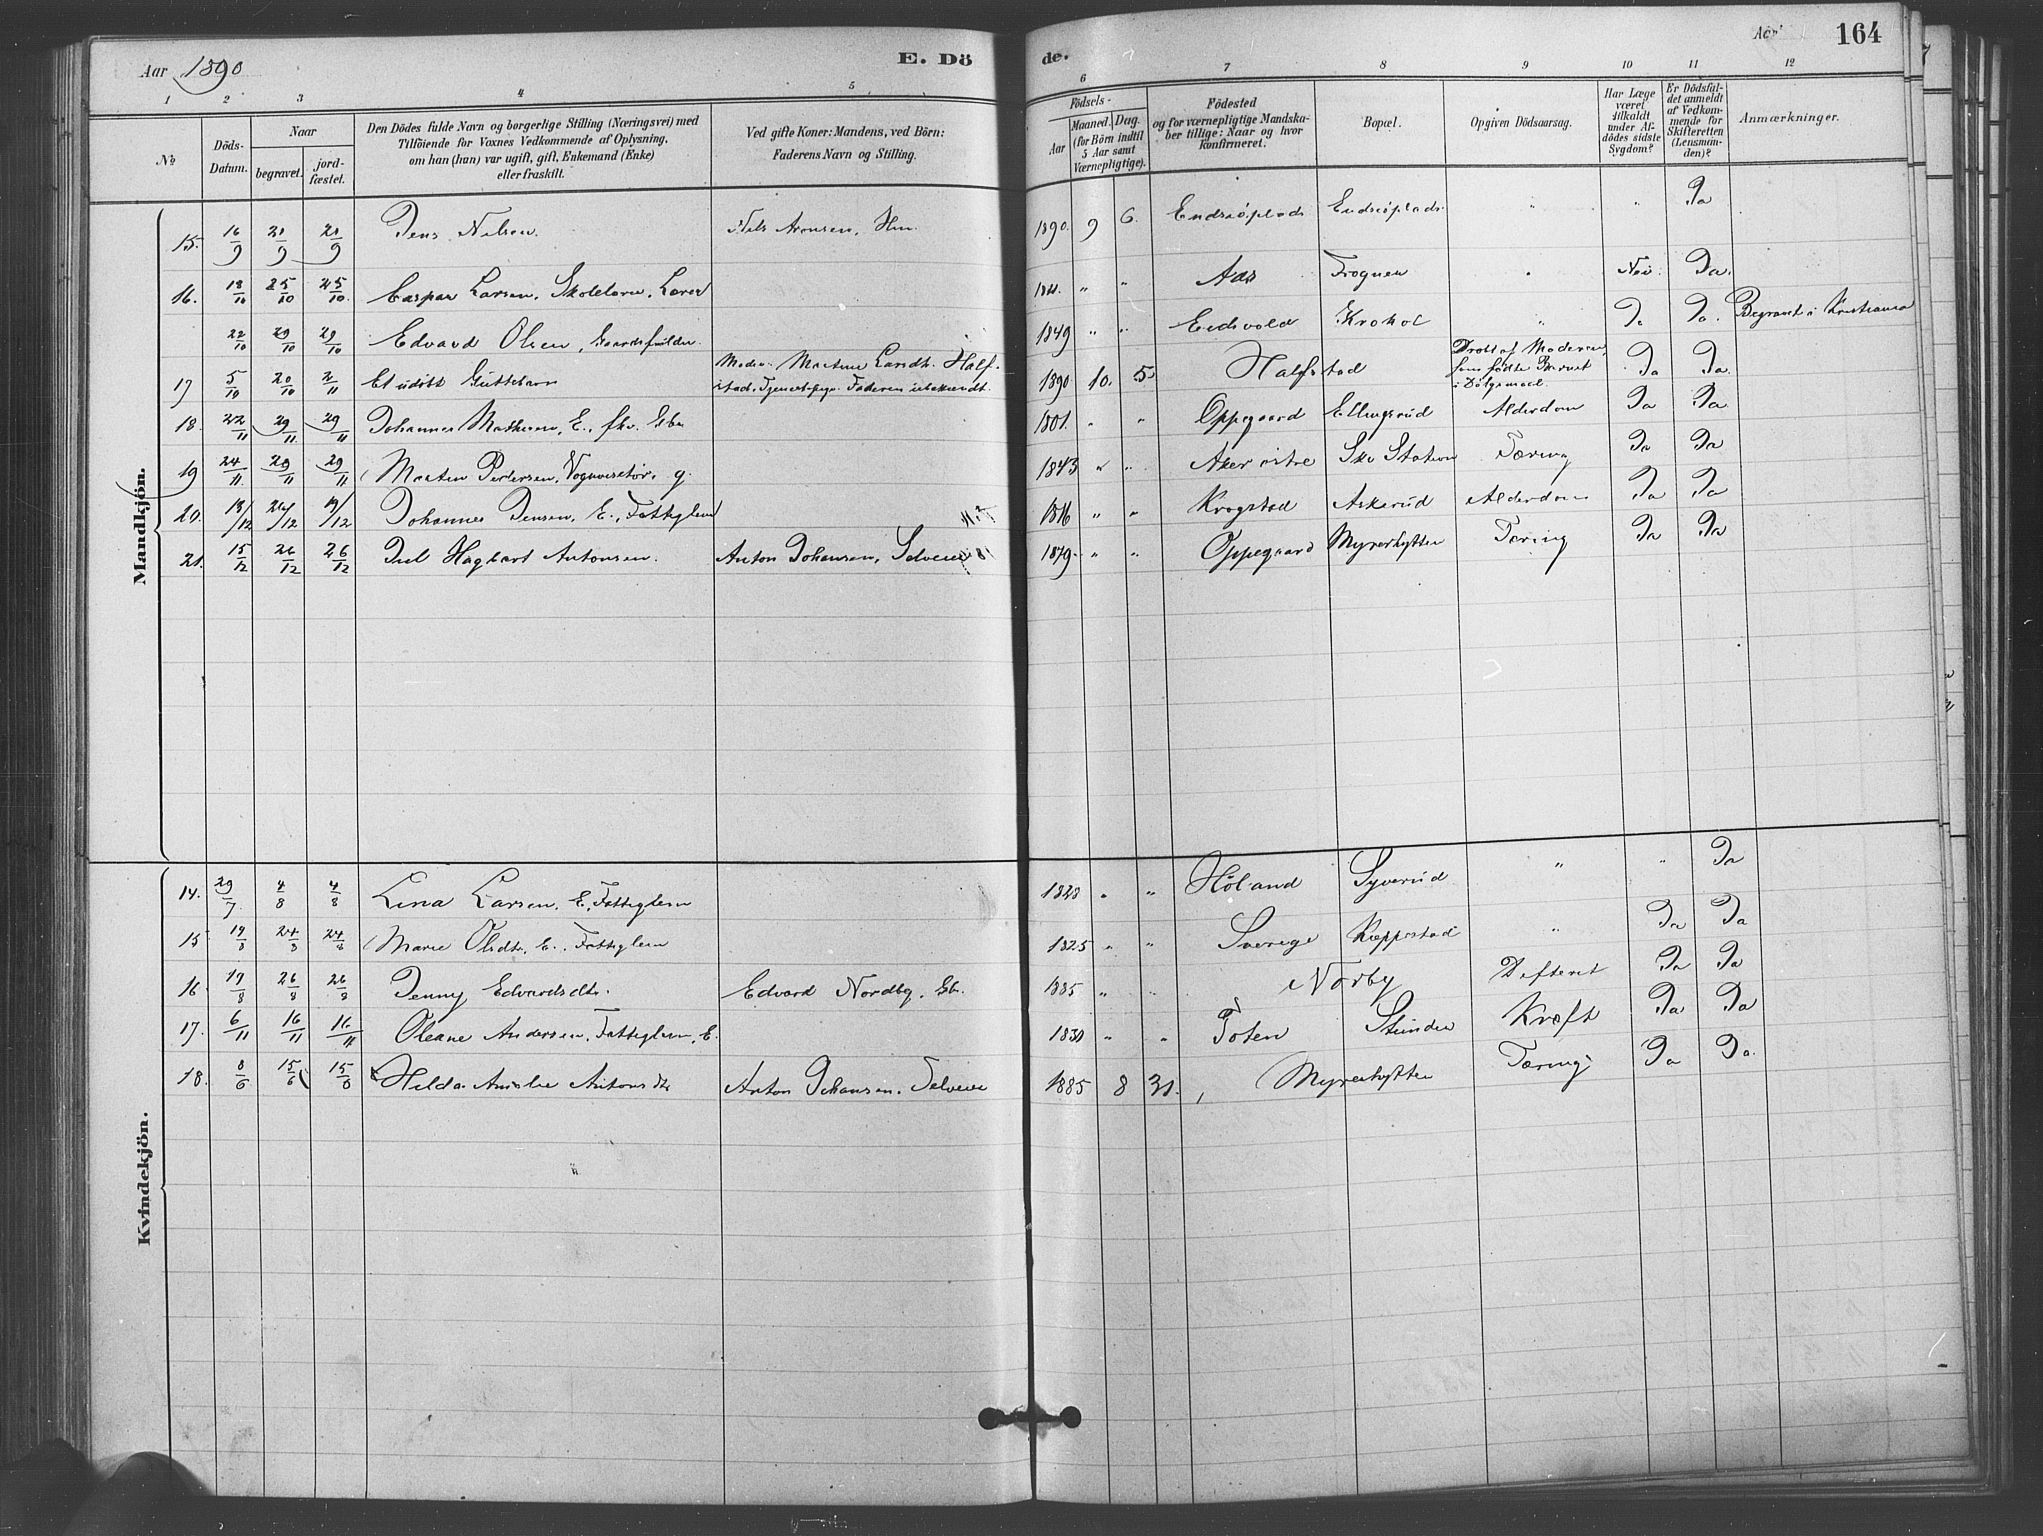 Aar 1890
E. Dö
de.
Aar
164
1 2 3 4 5 6 7 8 9 10 11 12
№
Döds-Datum.
Naar
begravet.
jord-fæstet.
Den Dödes fulde Navn og borgerlige Stilling (Næringsvei) med
Tilföiende for Voxnes Vedkommende af Oplysning,
om han (hun) var ugift, gift, Enkemand (Enke)
eller fraskilt.
Ved gifte Koner: Mandens, ved Börn:
Faderens Navn og Stilling.
Födsels-
Aar
Maaned. Dag.
(for Börn indtil
5 Aar samt
Værnepligtige).
Födested
og for værnepligtige Mandska-
ber tillige: Naar og hvor
konfirmeret.
Bopæl.
Opgiven Dödsaarsag.
Har Læge
været
tilkaldt
under Af-
dödes sidste
Sygdom?
Er Dödsfal-
det anmeldt
af Vedkom-
mende for
Skifteretten
(Lensman-
den)?
Anmærkninger.
Mandkjön.
15. 16/9 21/9 21/9 Jens Nilsen. Nils Aronsen, Hm. 1890. 9 6. Endsiöplads Endsiöplads " " Ja
16. 18/10 25/10 25/10. Caspar Larsen, Lærer 1811. " " Aas Frognen " Nei. Ja.
22/10 29/10 29/10 Edvard Olsen, 1849 " " Eidsvold Krokol " Ja Ja. Begravet i Kristiania
17 5/10 20/10 2/11 Et udöbt Guttebarn Moder: Martine Larsdt. Half-
stad. Tjenestepige. Faderen ubekjendt. 1890 10. 5 Halfstad Dræbt af Moderen,
som födte Barnet
i Dölgsmaal. Ja Ja.
18. 22/11 29/11. 29/11 Johannes Mathesen, E., fhv. Gbr 1801. " " Oppegaard Ellingsrud Alderdom Ja Ja.
19 24/11 29/11 29/11 Martin Pedersen, Vognvisitör, g. 1843 " " Aker östre Ski Station Tæring Ja Ja
20. 13/12 24/12 19/12 Johannes Jensen, E., Fattiglem 1816 " " Krogstad Askerud Alderdom Ja Ja
21. 15/12 26/12 26/12 Jul Hagbart Antonsen. Anton Johansen, Selveier 1879. " " Oppegaard Myrerhytten Tæring Ja Ja
Kvindekjön.
14. 29/7 4/8 4/8 Lina Larsen, E, Fattiglem 1828 " " Höland Syverud " " Ja
15 19/8 24/8 24/8 Marie Olsdtr, E., Fattiglem 1825 " " Sverige Kæppestad " Ja Ja
16 19/8 26/8 26/8 Jenny Edvardsdtr. Edvard Nordby, Gb. 1885 " " Norby Difterit Ja Ja
17. 6/11 16/11 16/11 Oleane Andersen, Fattiglem, E. 1830 " " Toten Stunder Kræft Ja Ja
18. 8/6 15/6 15/6 Hilda Amalie Antonsdtr Anton Johansen, Selveier 1885 8 31. Myrerhytten Tæring Ja Ja.